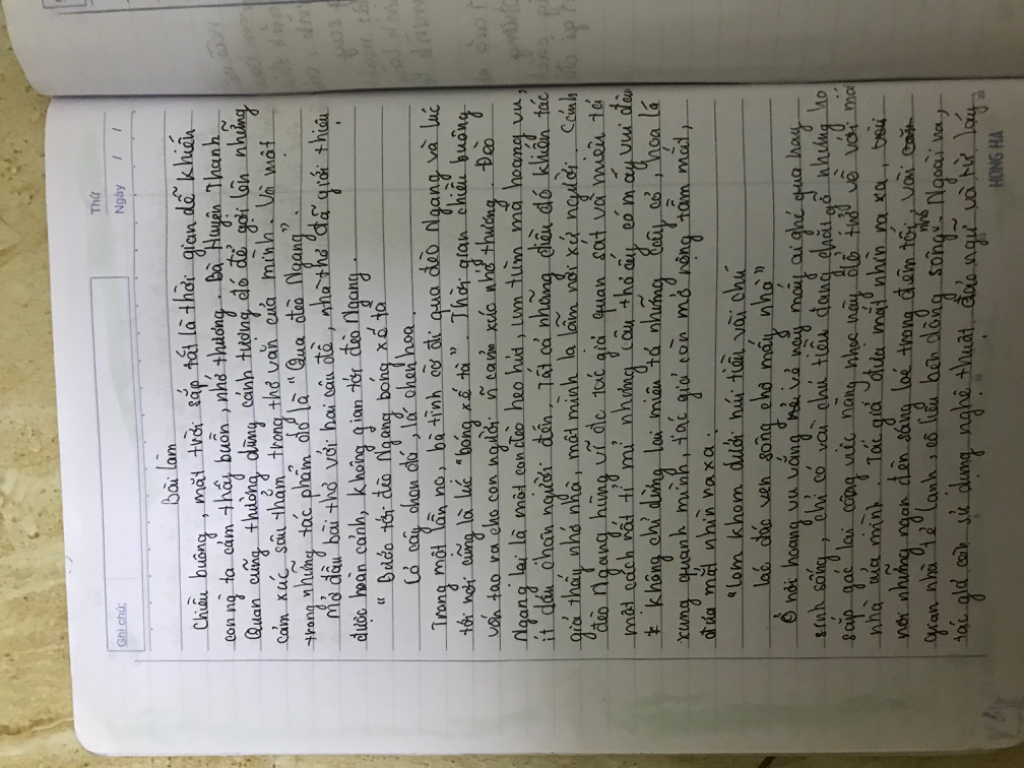 Ghi chú:
Thứ
Ngày / /
Bài làm
Chiều buông, mặt trời sắp tắt là thời gian dễ khiến
con ng ta cảm thấy buồn, nhớ thương. Bà Huyện Thanh
Quan cũng thường dùng cảnh tượng đó để gợi lên những
cảm xúc sâu thẳm trong thơ văn của mình. Và một
trong những tác phẩm đó là "Qua đèo Ngang".
Mở đầu bài thơ với hai câu đề, nhà thơ đã giới thiệu
được hoàn cảnh, không gian tới đèo Ngang.
"Bước tới đèo Ngang bóng xế tà
Cỏ cây chen đá, lá chen hoa.
Trong một lần nọ, bà tình cờ đi qua đèo Ngang và lúc
tới nơi cũng là lúc "bóng xế tà". Thời gian chiều buông
vốn tạo ra cho con người ~ cảm xúc nhớ thương. Đèo
Ngang lại là một con đèo heo hút, um tùm mà hoang vu,
ít dấu chân người đến. Tất cả những điều đó khiến tác
giả thấy nhớ nhà, một mình lạ lẫm nơi xứ người. Cảnh
đèo Ngang hùng vĩ đc tác giả quan sát và miêu tả
một cách rất tỉ mỉ nhưng câu thơ ấy có mấy vui đâu
* Không chỉ dừng lại miêu tả những cây cỏ, hoa lá
xung quanh mình, tác giả còn mở rộng tầm mắt,
đưa mắt nhìn ra xa.
"Lom khom dưới núi tiều vài chú
Lác đác ven sông chợ mấy nhà"
Ở nơi hoang vu vắng vẻ này mấy ai ghé qua hay
sinh sống, chỉ có vài chú tiều đang chặt gỗ nhưng họ
sắp gác lại công việc nặng nhọc này để trở về với mái
nhà của mình. Tác giả đưa mắt nhìn ra xa, với
nơi những ngọn đèn sáng loé trong đêm tối, vài căn nhỏ
quán nhà lẻ tẻ lạnh, cô liêu bên dòng sông. Ngoài ra,
tác giả còn sử dụng nghệ thuật đảo ngữ và từ láy
HONG HA